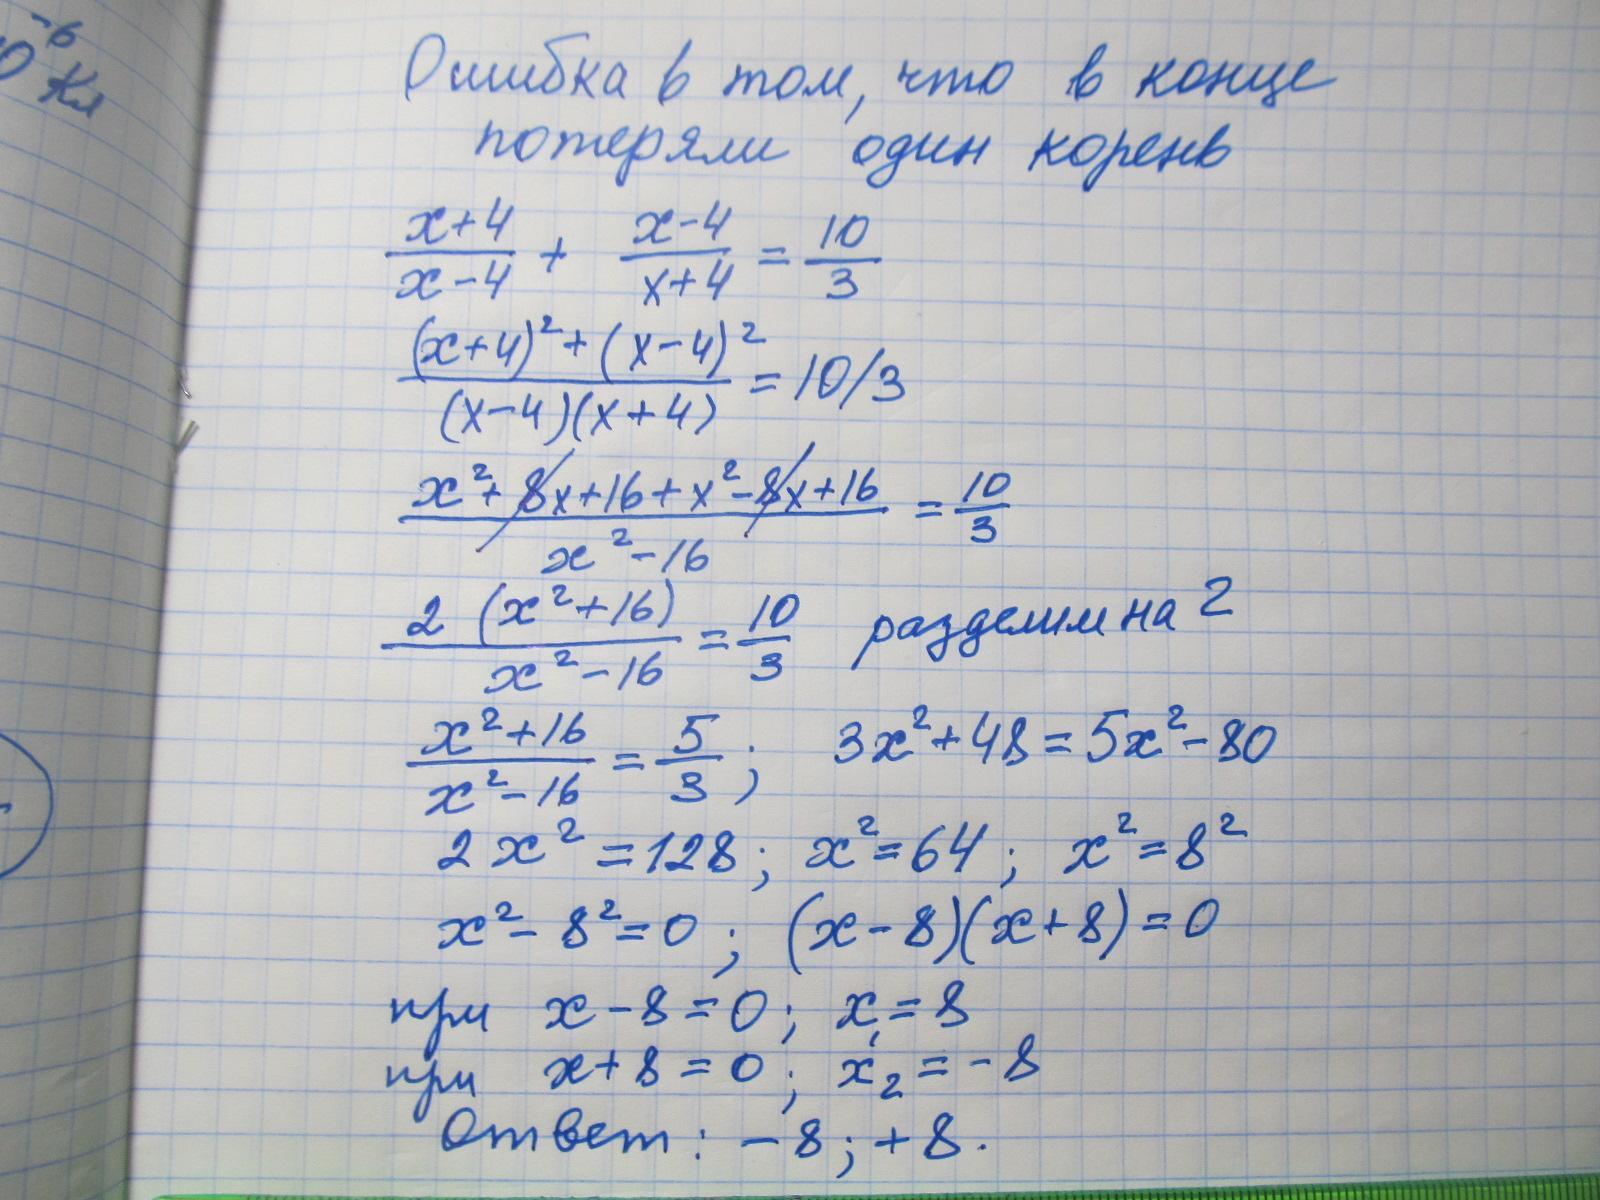 -6
0 Кл
Ошибка в том, что в конце
потеряли один корень
x+4/x-4 + x-4/x+4 = 10/3
(x+4)²+(x-4)²/(x-4)(x+4) = 10/3
x²+8x+16+x²-8x+16/x²-16 = 10/3
2(x²+16)/x²-16 = 10/3 разделим на 2
x²+16/x²-16 = 5/3; 3x²+48=5x²-80
2x²=128; x²=64; x²=8²
x²-8²=0; (x-8)(x+8)=0
при x-8=0; x₁=8
при x+8=0; x₂=-8
Ответ: -8; +8.